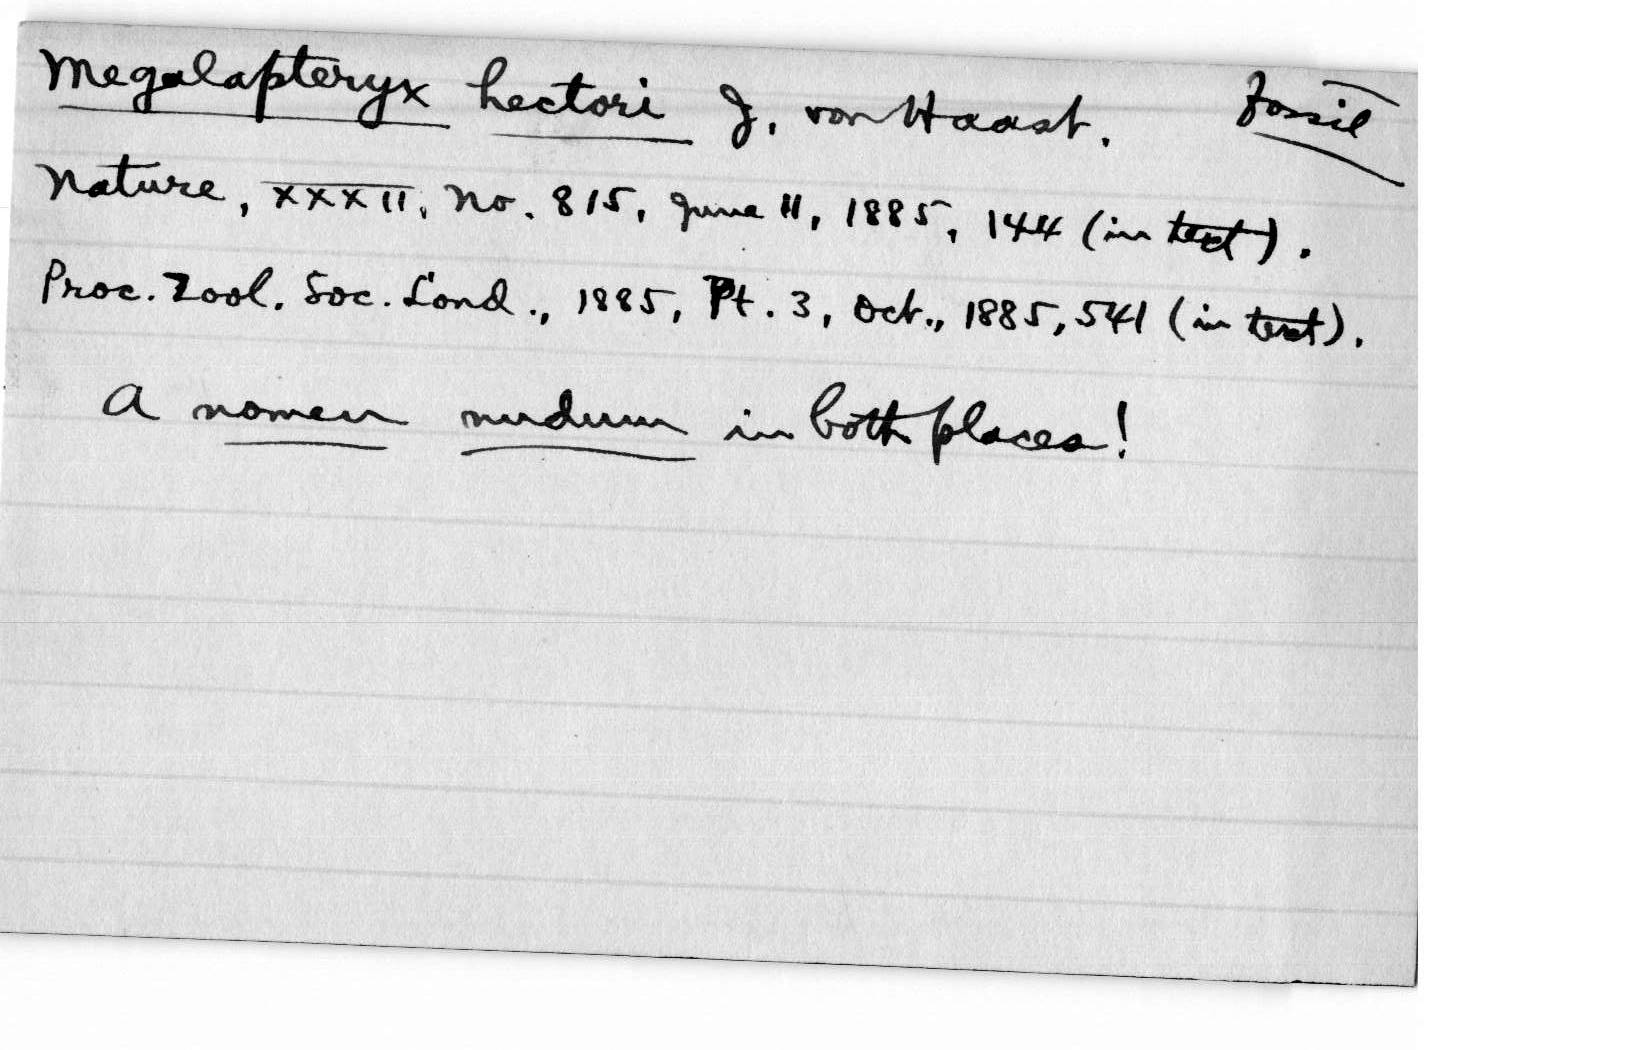 Megalapteryx hectori J. von Haast. Fossil
Nature, XXXII, No. 815, June 11, 1885, 144 (in text).
Proc. Zool. Soc. Lond., 1885, Pt. 3, Oct., 1885, 541 (in text).
A nomen nudum in both places!